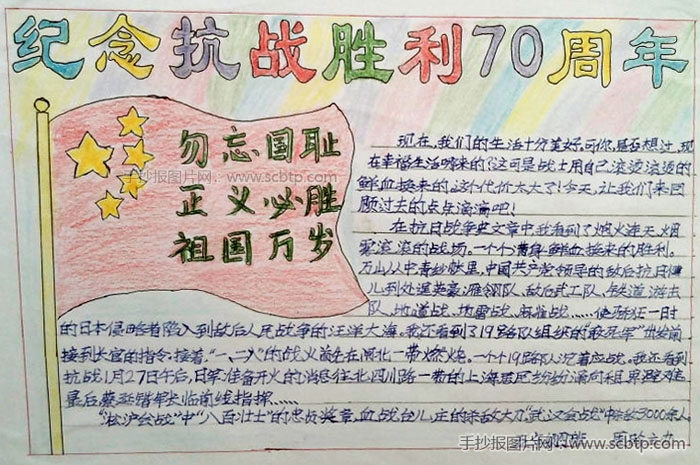 纪念抗战胜利70周年
勿忘国耻
正义必胜
祖国万岁
手抄报图片网 www.scbtp.com
现在,我们的生活十分美好,可你是否想过,现
在幸福生活哪来的?这可是战士用自己滚烫滚烫的
鲜血换来的,这个代价太大了!今天,让我们来回
顾过去的点点滴滴吧!
在抗日战争史文章中我看到了烟火连天,烟
雾滚滚的战场。一个个满身鲜血换来的胜利。
万山丛中青纱帐里,中国共产党领导的敌后抗日健
儿到处逞英豪,雁翎队、敌后武工队、铁道游击
队、地道战、地雷战、麻雀战……使疯狂一时
的日本侵略者陷入到敌后人民战争的汪洋大海。我还看到了19路队组织的敢死军
接到长官的指令,接着,“一、二八”的战火首先在闸北一带燃烧。一个个19路队沉着应战。我还看到
抗战1月27日午后,日军准备开火的消息往北四川路一带的上海居民纷纷涌向租界避难
最后蔡廷锴军长临前线指挥……
“淞沪会战”中“八百壮士”的忠贞奖章,血战台儿庄的杀敌大刀“武汉会战”中杀敌3000余人
手抄报图片网 www.scbtp.com